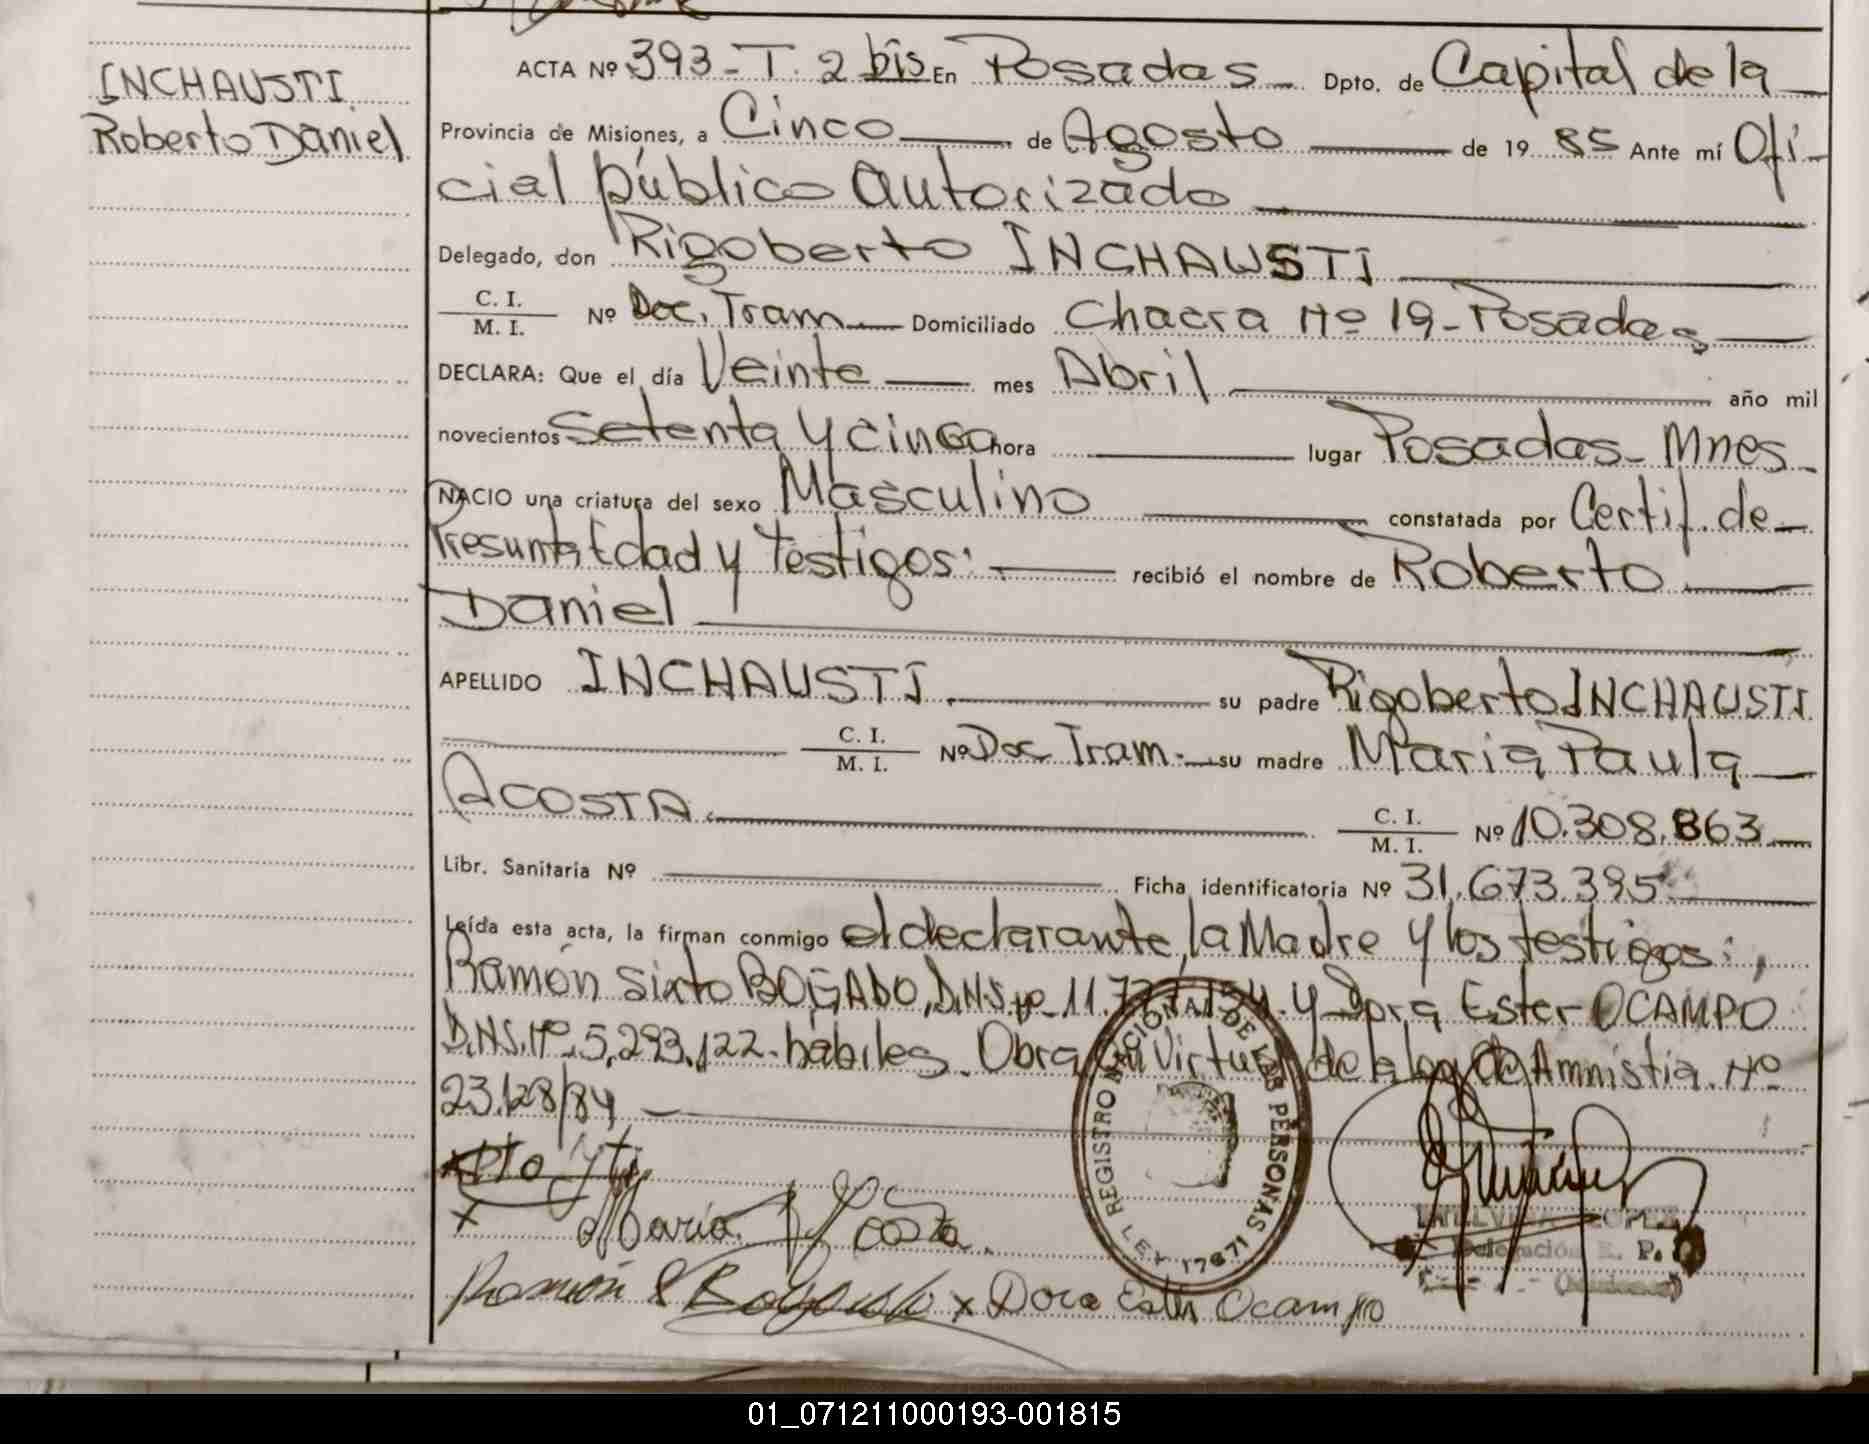 INCHAUSTI
Roberto Daniel
ACTA Nº 393-T. 2 bis En Posadas Dpto. de Capital de la
Provincia de Misiones, a Cinco de Agosto de 1985 Ante mí Ofi-
cial público autorizado
Delegado, don Rigoberto INCHAUSTI
C. I.
M. I. Nº Doc. Tram. Domiciliado Chacra Nº 19-Posadas
DECLARA: Que el día Veinte mes Abril año mil
novecientos Setenta y cinco hora lugar Posadas-Mnes-
NACIO una criatura del sexo Masculino constatada por Certif. de
Presunta Edad y Testigos: recibió el nombre de Roberto
Daniel
APELLIDO INCHAUSTI su padre Rigoberto INCHAUSTI
C. I.
M. I. Nº Doc Tram. su madre Maria Paula
ACOSTA C. I.
M. I. Nº 10.308.863
Libr. Sanitaria Nº Ficha identificatoria Nº 31.673.395
Leída esta acta, la firman conmigo el declarante, la Madre y los testigos:
Ramón Sixto BOGADO, D.N.I. Nº 11. y Dora Ester OCAMPO
D.N.I. Nº 5.293.122-hábiles. Obra en Virtud de la ley de Amnistia. Nº
23.128/84
x
x Maria Acosta.
Ramón S Bogado x Dora Ester Ocampo
REGISTRO NACIONAL DE LAS PERSONAS
LEY 17671
Delegación R. P.
01_071211000193-001815